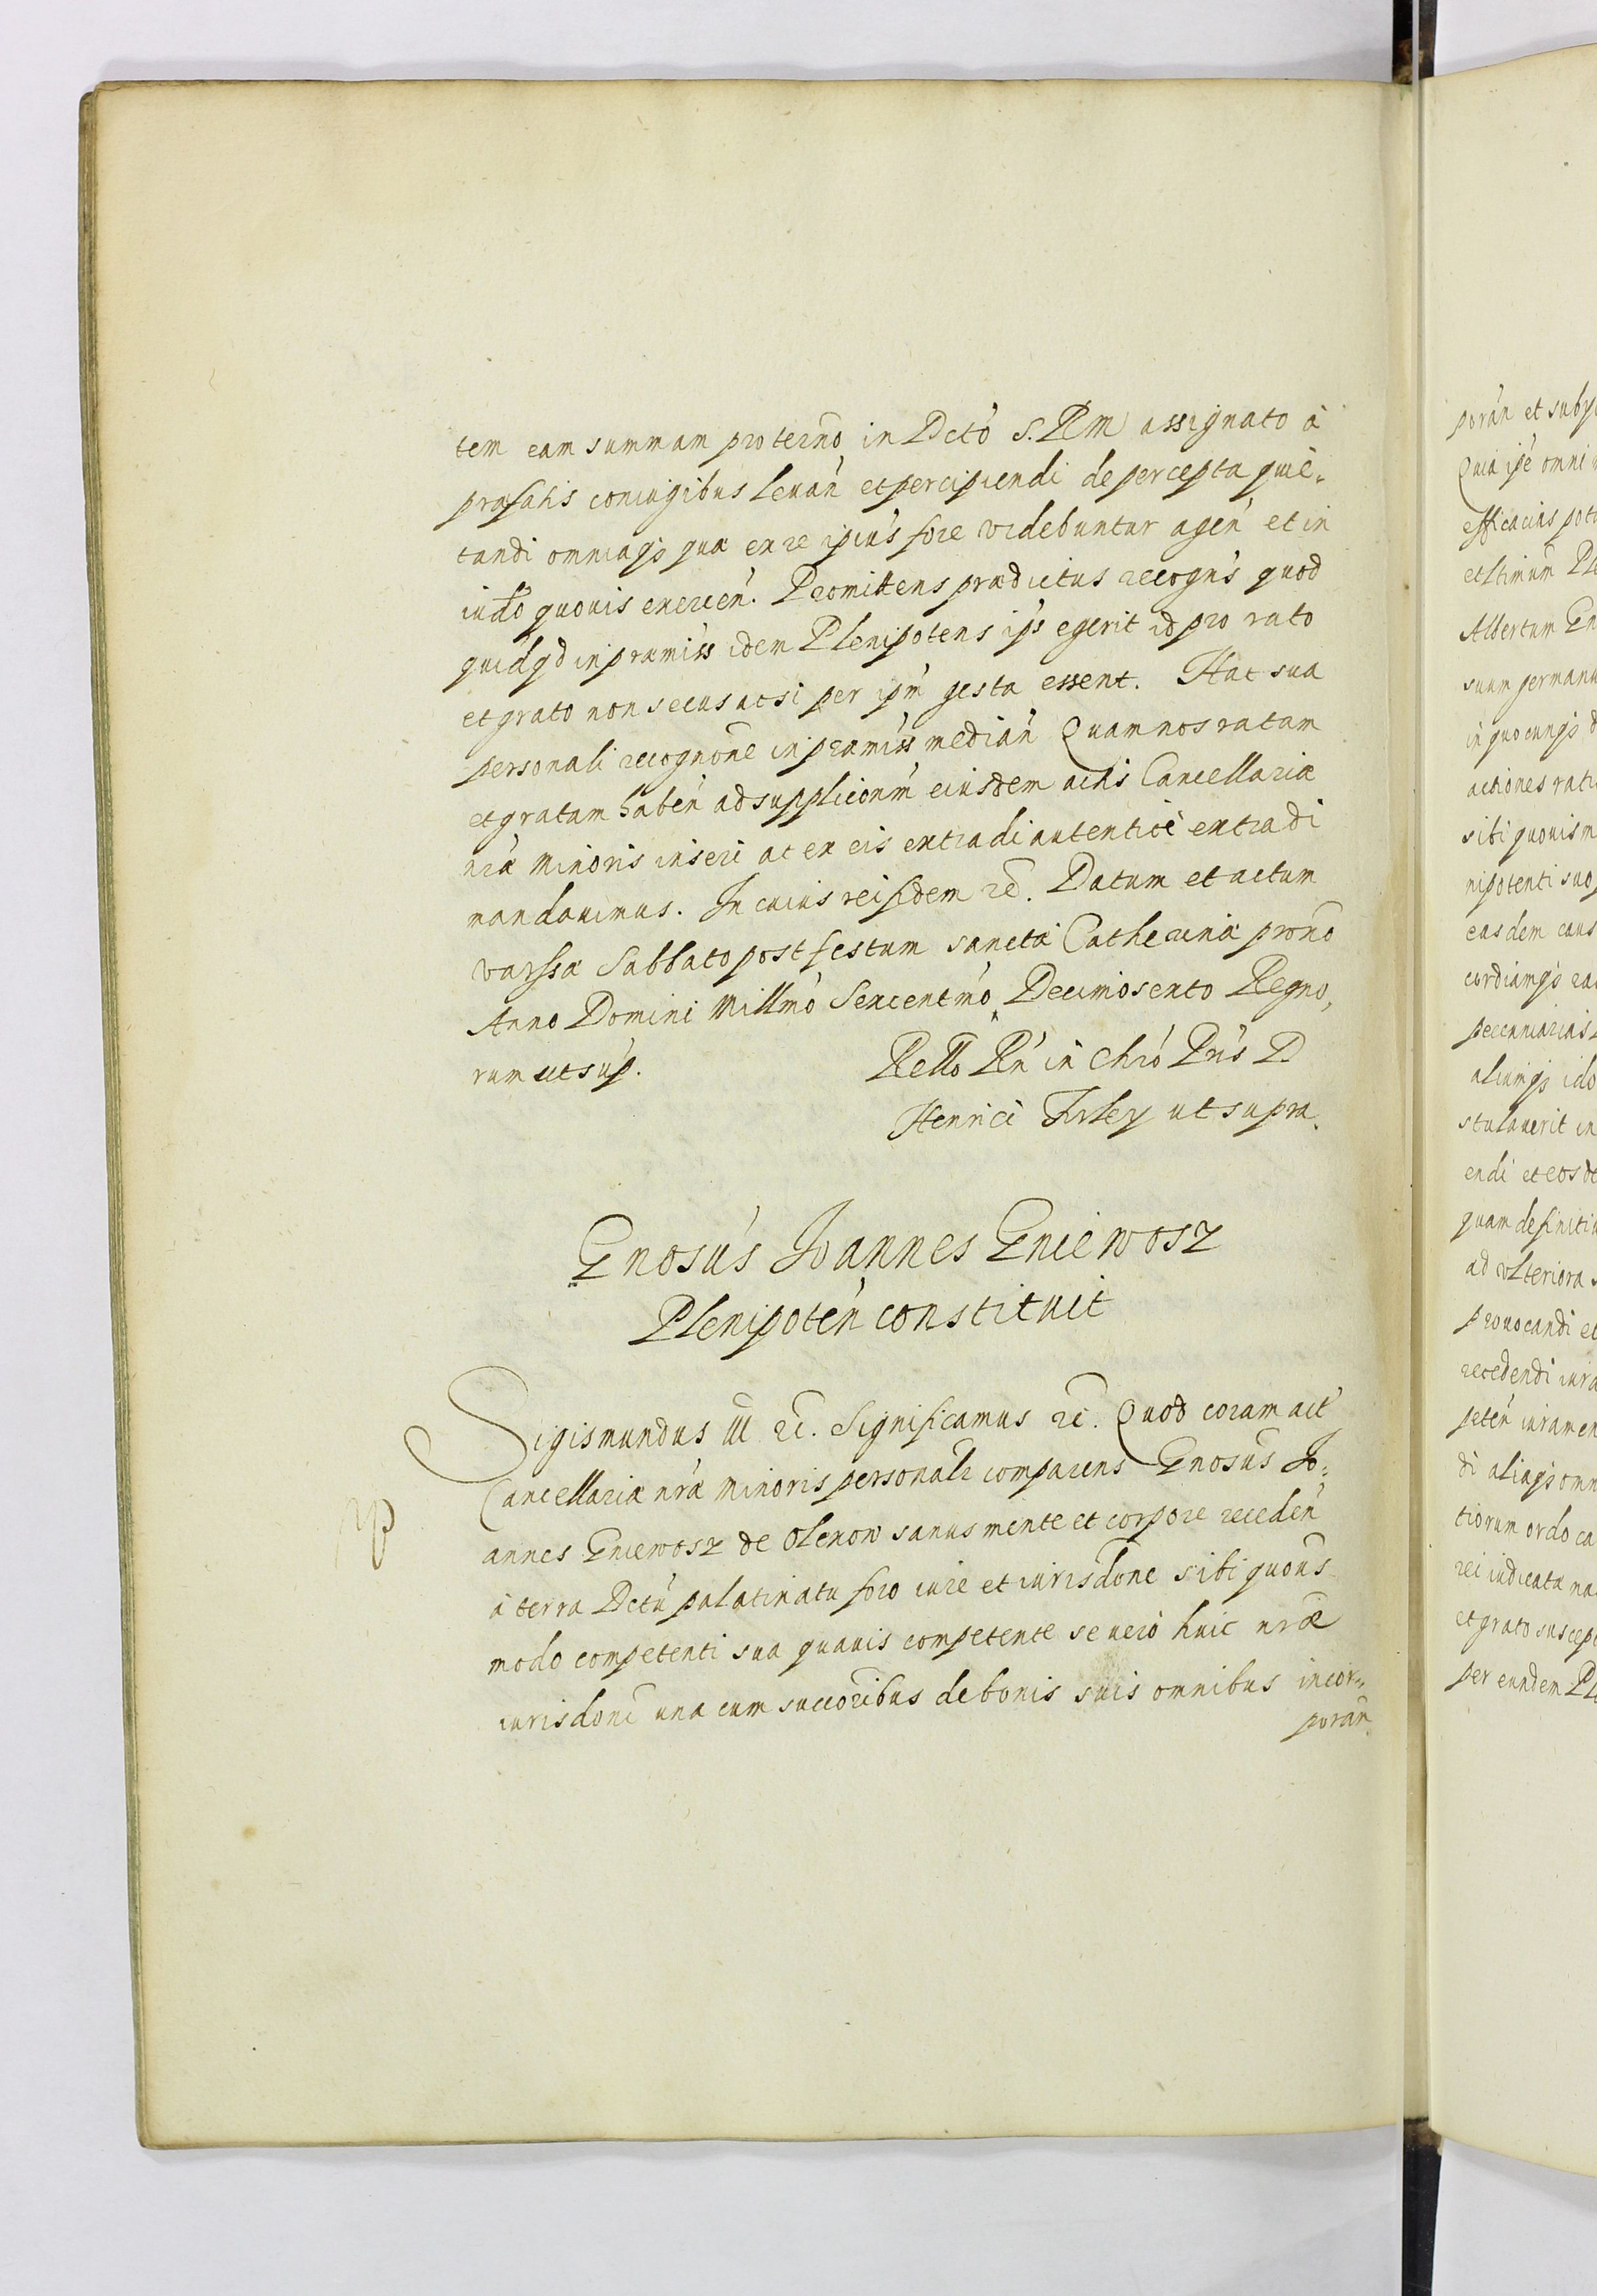 tem eam summam pro termo in Dcto S.R.M assignato à
præfatis coniugibus levan̄ et percipiendi de percepta quie-
tandi omniaq̨ quæ ex re ipius fore videbuntur agen̄ et in
iudo quovis exercen̄. Promittens prædictus recogns quod
quidqd in præmiss idem Plenipotens ips egerit id pro rato
et grato non secus ac si per ipm gesta essent. Hac sua
personali recognone in præmiss median̄ Quam nos ratam
et gratam haben̄ ad supplicōnm eiusdem actis Cancellariæ
nræ Minoris inseri ac ex eis extradi autenticè extradi
mandavimus. In cuius rei fidem rc. Datum et actum
Varssæ Sabbato post festum sanctæ Catherinæ prōno
Anno Domini Millmo Sexcentmo Decimosexto Regno,
rum ut sup.
Rello Rn in Chro Pris D
Henrici Firley ut supra.
Gnosus Joannes Gniewosz
Plenipoten̄ constituit
Sigismundus III rc. Significamus rc. Quod coram act
Cancellariæ nræ Minoris personalr comparens Gnosus Jo-
annes Gniewosz de Olexow sanus mente et corpore receden̄
à terra Dctu palatinatu foro iure et iurisdone sibi quovis
modo competenti sua quavis competente se vero huic nræ
iurisdoni una cum succoribus de bonis suis omnibus incor-
poran̄
pp
poran̄ et subyc
Quia ipe omni
efficacius pot
et ltimum Ple
Albertum Gn
suum germanu
in quocunq̨ d
actiones rati
sibi quovis m
nipotenti suo
easdem caus
cordiamq̨ ea
pecuniarias
aliumq̨ ido
stulaverit in
endi et eos de
quam definiti
ad ulteriora
provocandi et
recedendi iura
peten̄ iuramen
di aliaq̨ omn
tiorum ordo ca
rei iudicatæ na
et grato suscep
per eundem Pl